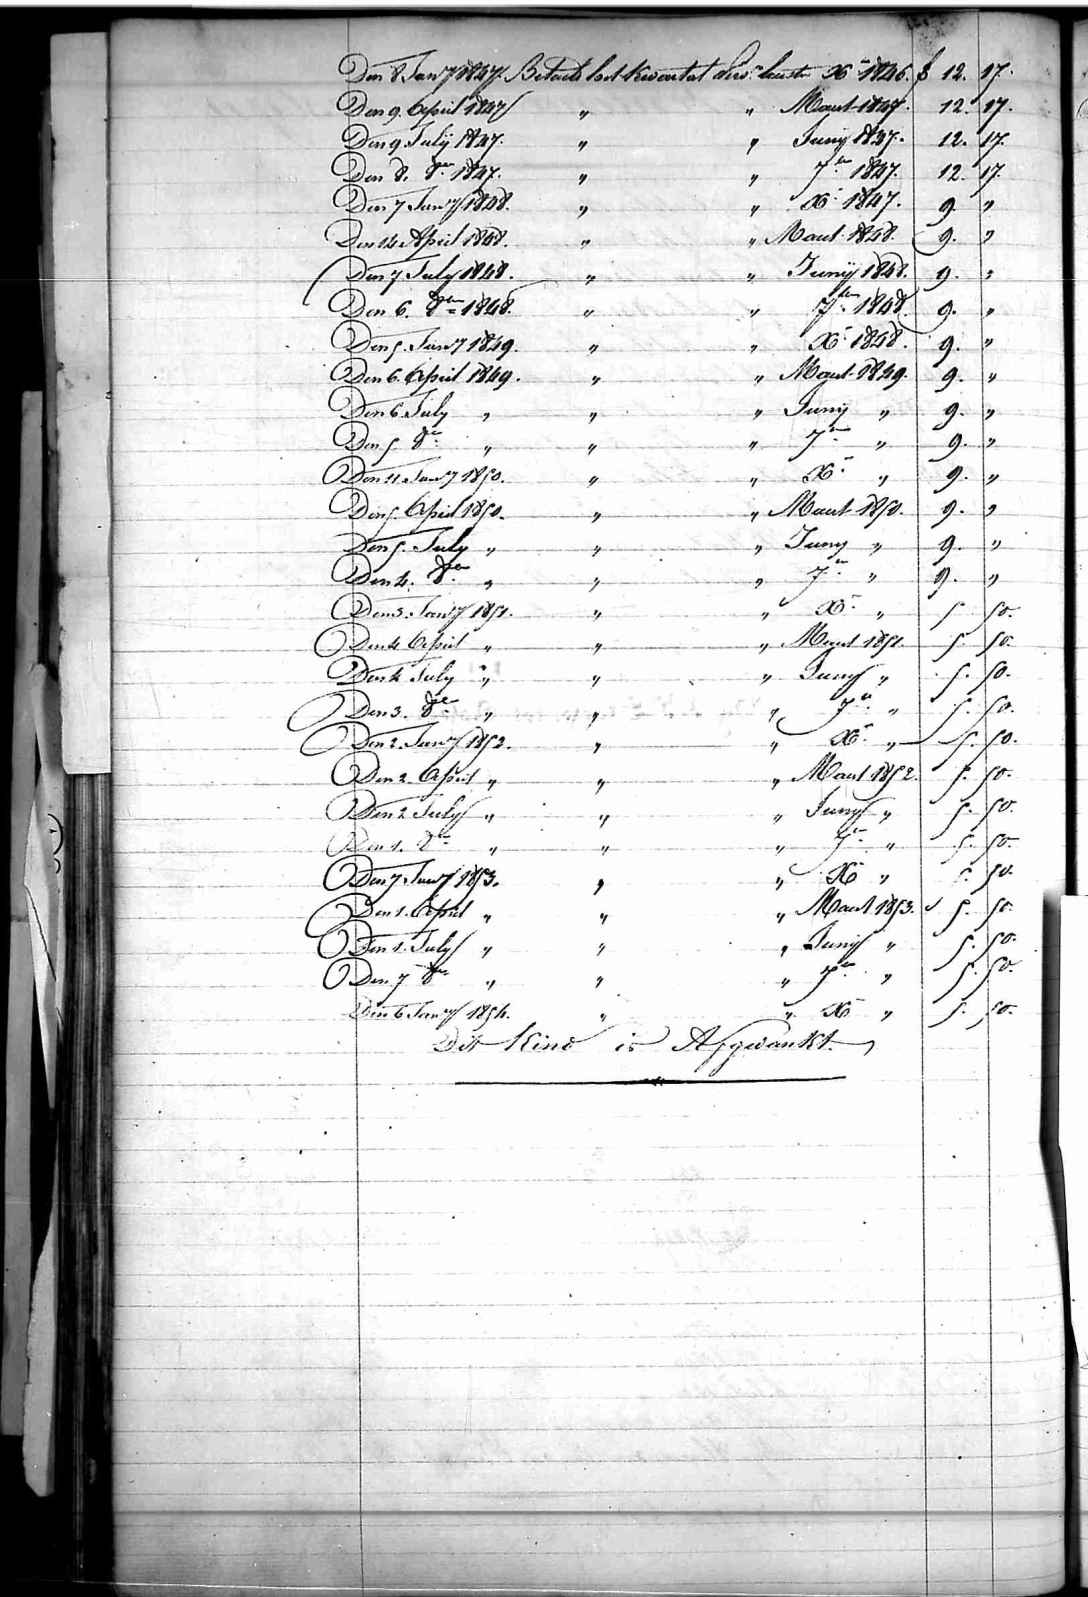 Den 8 Jany 1847. Betaald het Kwartal Pro: laaste Xr 1846. f 12. 17.
Den 9 April 1847 " " Maart 1847. 12. 17.
Den 9 July 1847. " " Juny 1847. 12. 17.
Den 8. 8er 1847. " " 7er 1847. 12. 17.
Den 7 Jany 1848. " " Xr 1847. 9. "
Den 14 April 1848. " " Maart 1848. 9. "
Den 7 July 1848. " " Juny 1848. 9. "
Den 6. 8er 1848. " " 7er 1848. 9. "
Den 5. Jany 1849. " " Xr 1848. 9. "
Den 6. April 1849. " " Maart 1849. 9. "
Den 6 July " " " Juny " 9. "
Den 5. 8er " " " 7er " 9. "
Den 11. Jany 1850. " " Xr " 9. "
Den 5. April 1850. " " Maart 1850. 9. "
Den 5. July " " " Juny " 9. "
Den 4. 8er " " " 7er " 9. "
Den 3. Jany 1851. " " Xr " 5. 50.
Den 4 April " " " Maart 1851. 5. 50.
Den 4 July " " " Juny " 5. 50.
Den 3. 8er " " " 7er " 5. 50.
Den 2. Jany 1852. " " Xr " 5. 50.
Den 2. April " " " Maart 1852. 5. 50.
Den 2 July " " " Juny " 5. 50.
Den 1. 8er " " " 7er " 5. 50.
Den 7 Jany 1853. " " Xr " 5. 50.
Den 1. April " " " Maart 1853. 5. 50.
Den 1. July " " " Juny " 5. 50.
Den 7 8er " " " 7er " 5. 50.
Den 6 Jany 1854. " " Xr " 5. 50.
Dit Kind is Afgedankt.